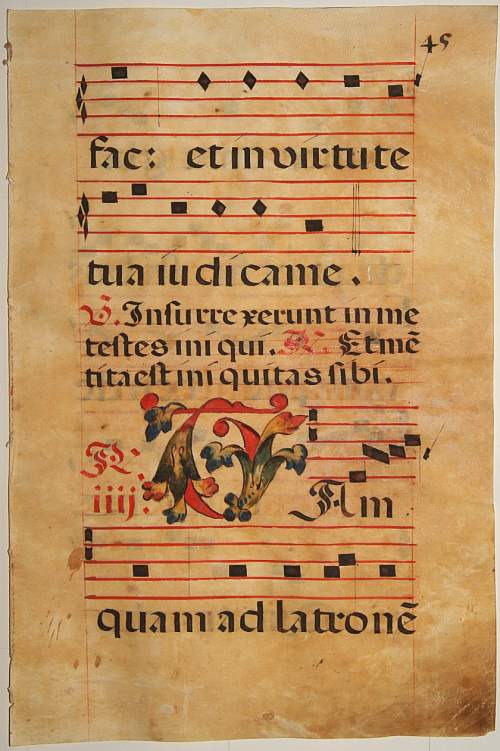 45
fac: et in virtute
tua iudica me.
V. Insurrexerunt in me
testes iniqui. R. Et mẽ
tita est iniquitas sibi.
R. iiij. TAm
quam ad latronẽ